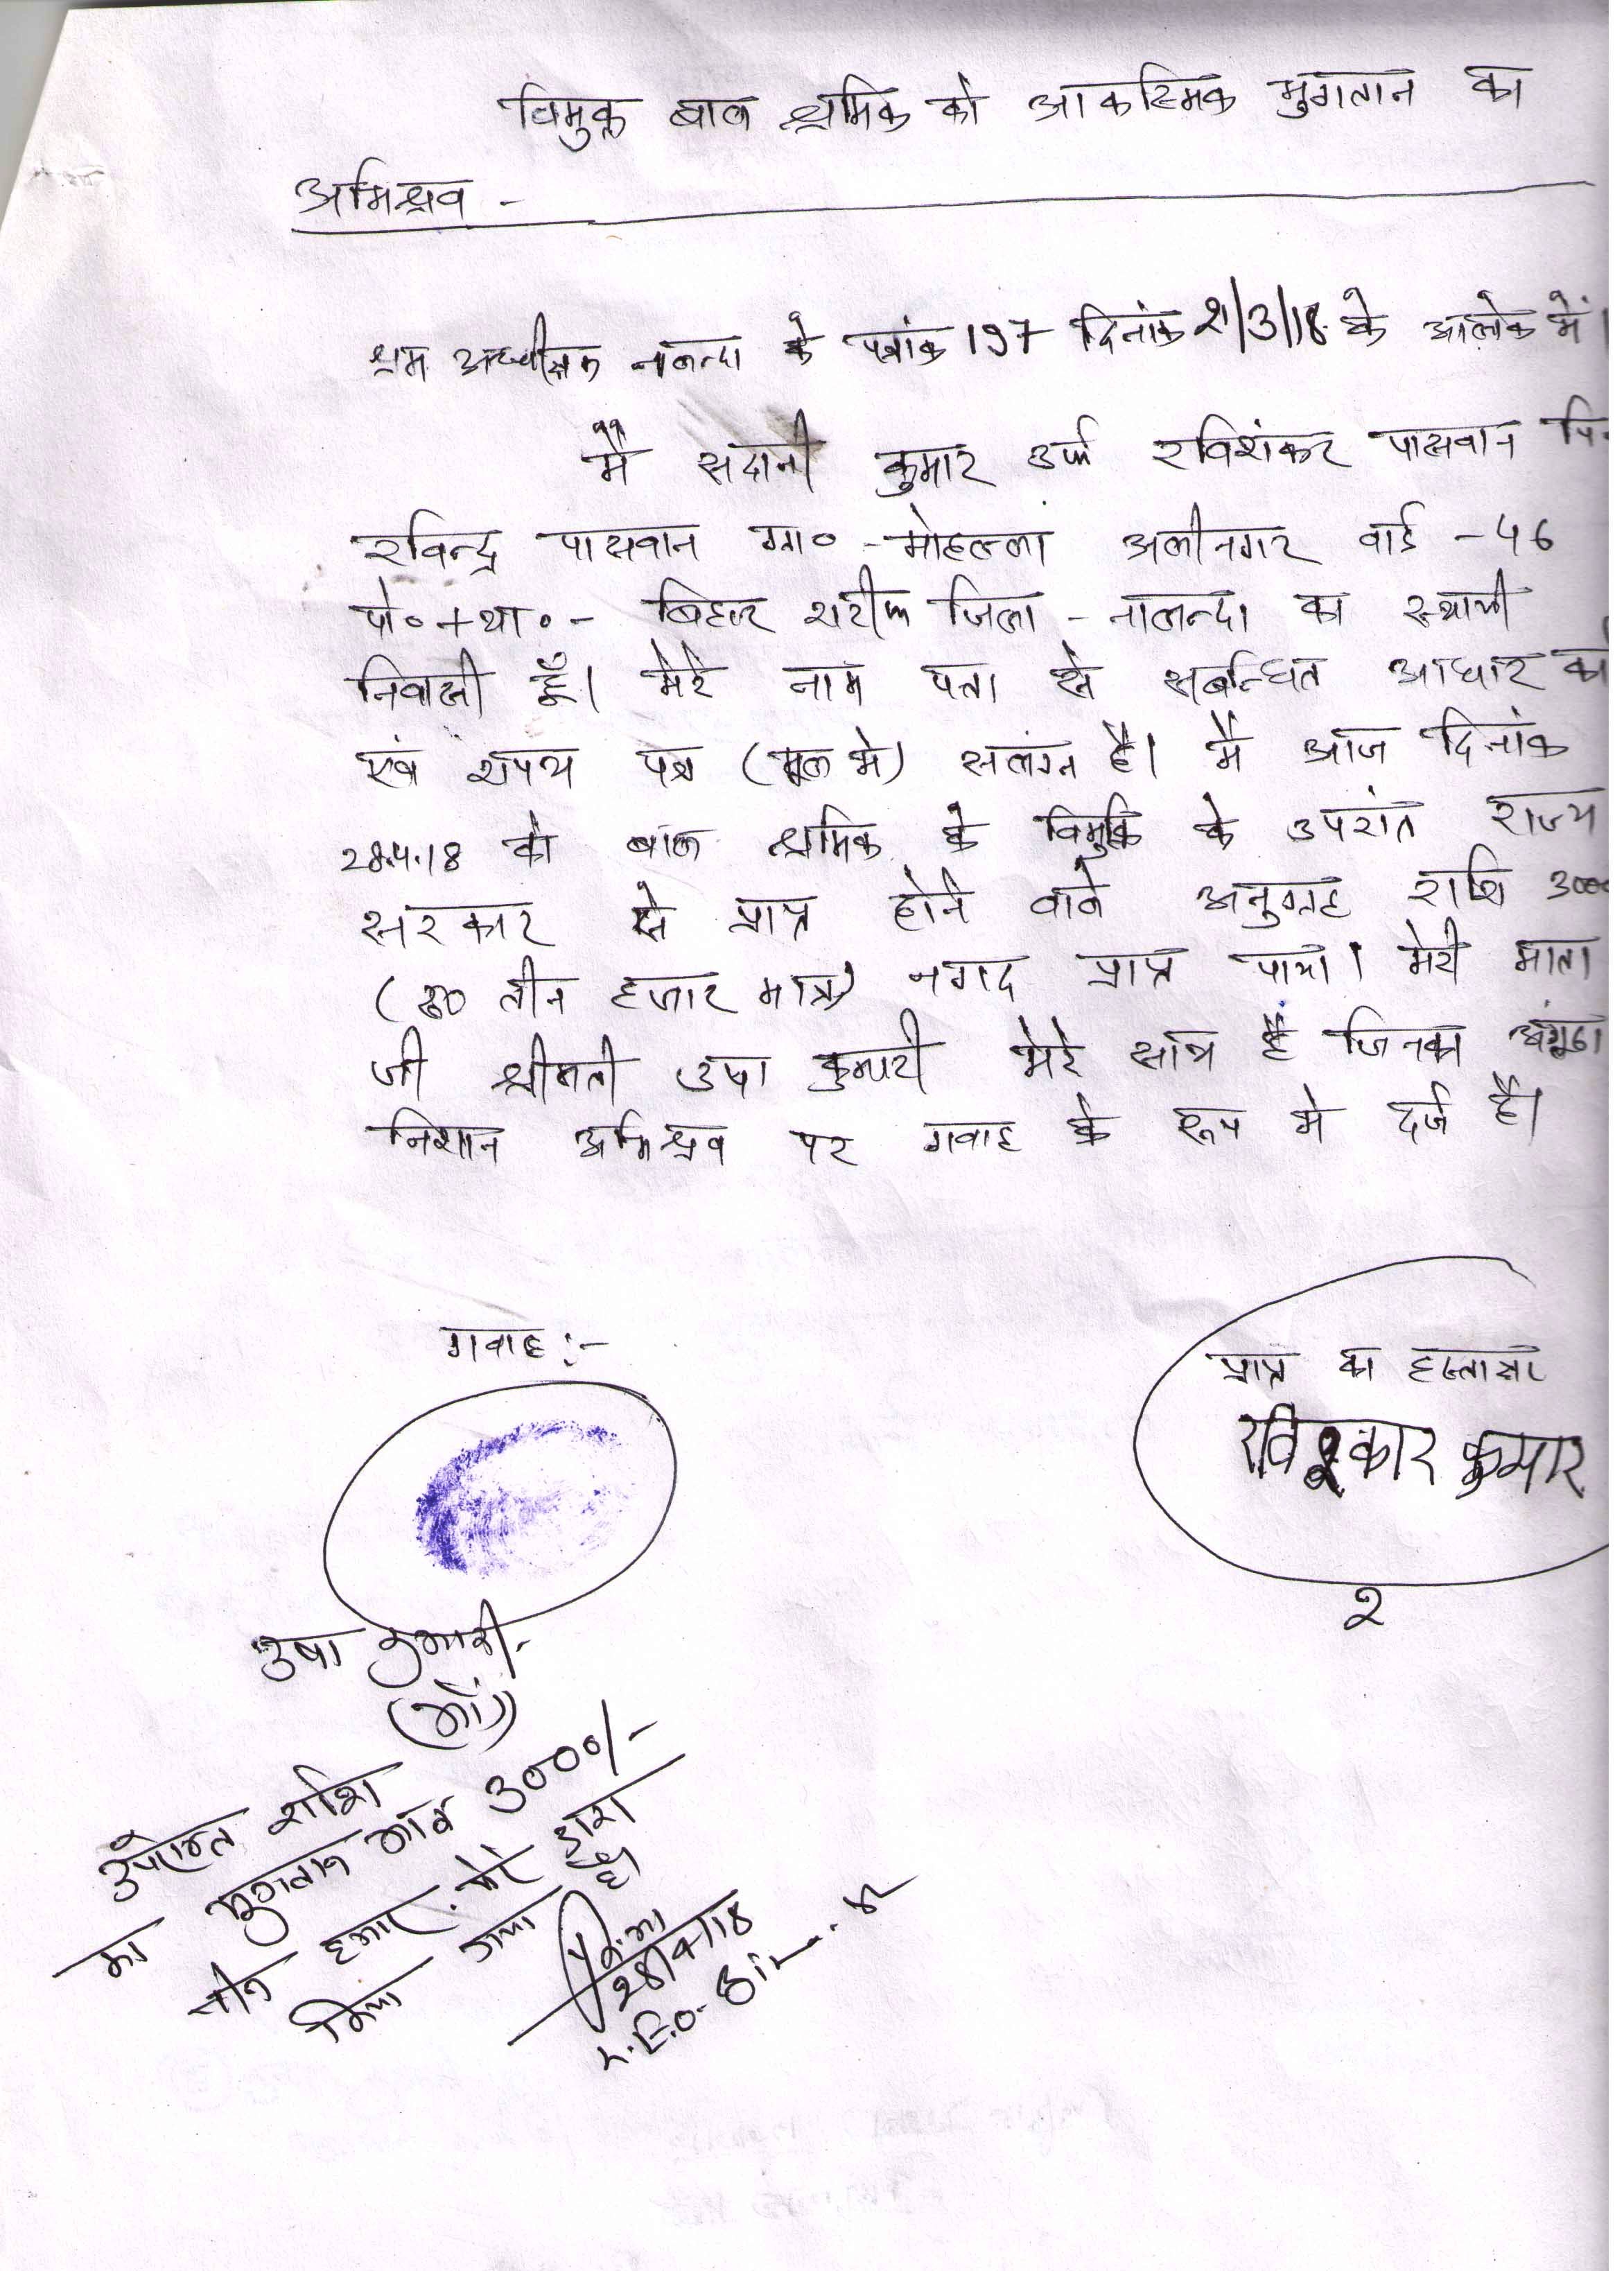 विमुक्त बाल श्रमिक को आकस्मिक भुगतान का
अभिश्रव -
श्रम अधीक्षक नालन्दा के पत्रांक 197 दिनांक 21/3/18 के आलोक में।
मैं सदानी कुमार उर्फ रविशंकर पासवान
रविन्द्र पासवान ग्रा० - मोहल्ला अलीनगर वार्ड - 46
पो० + था० - बिहार शरीफ जिला - नालन्दा का स्थायी
निवासी हूँ। मेरे नाम पता से सबन्धित आधार
एवं शपथ पत्र (मूल मे) सलंग्न है। मैं आज दिनांक
28.4.18 को बाल श्रमिक के विमुक्ति के उपरांत राज्य
सरकार से प्राप्त होने वाले अनुग्रह राशि 3000
(रू० तीन हजार मात्र) नगद प्राप्त पाया। मेरी माता
जी श्रीमती उषा कुमारी मेरे साथ हैं जिनका अंगूठा
निशान अभिश्रव पर गवाह के रूप मे दर्ज है।
गवाह :-
प्राप्त का हस्ताक्षर
कुमार
२
उषा कुमारी -
(माँ)
उपरोक्त राशि
का भुगतान मो० 3000/-
तीन हजार मेरे द्वारा
किया गया है।
L.E.O.